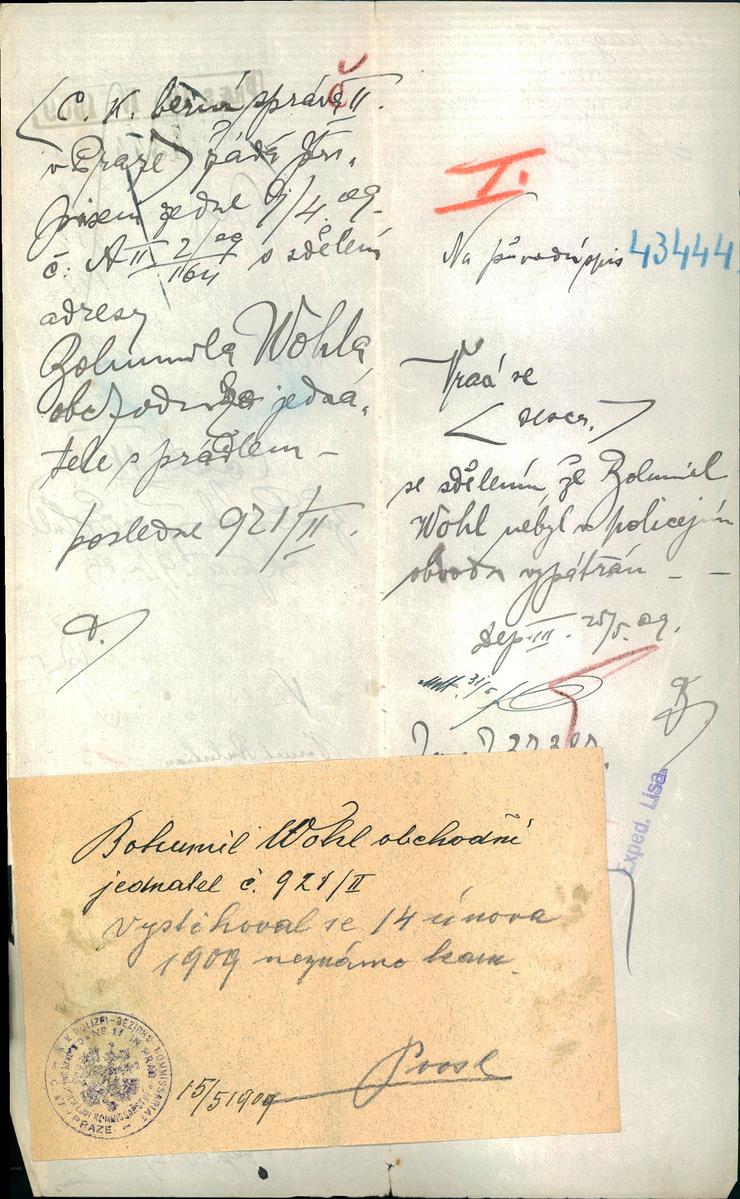 č
C. K. berní správa II.
v Praze žádá při-
pisem ze dne 9/4. 09
č. A II 2/09 1164 o sdělení
adresy
Bohumila Wohla
obchodního jedna-
tele s prádlem –
posledně 921/II.
I.
Na původní spis 43444
Vrací se
se sdělením že Bohumil
Wohl nebyl v policejním
obvodu vypátrán – –
Dep. III. 25/5. 09.
31/5
Exped. Lisa.
Bohumil Wohl obchodní
jednatel č. 921/II
vystěhoval se 14 února
1909 neznámo kam
15/5 1909
K. K. POLIZEI-BEZIRKS-KOMMISSARIAT
IN PRAG
PRAZE